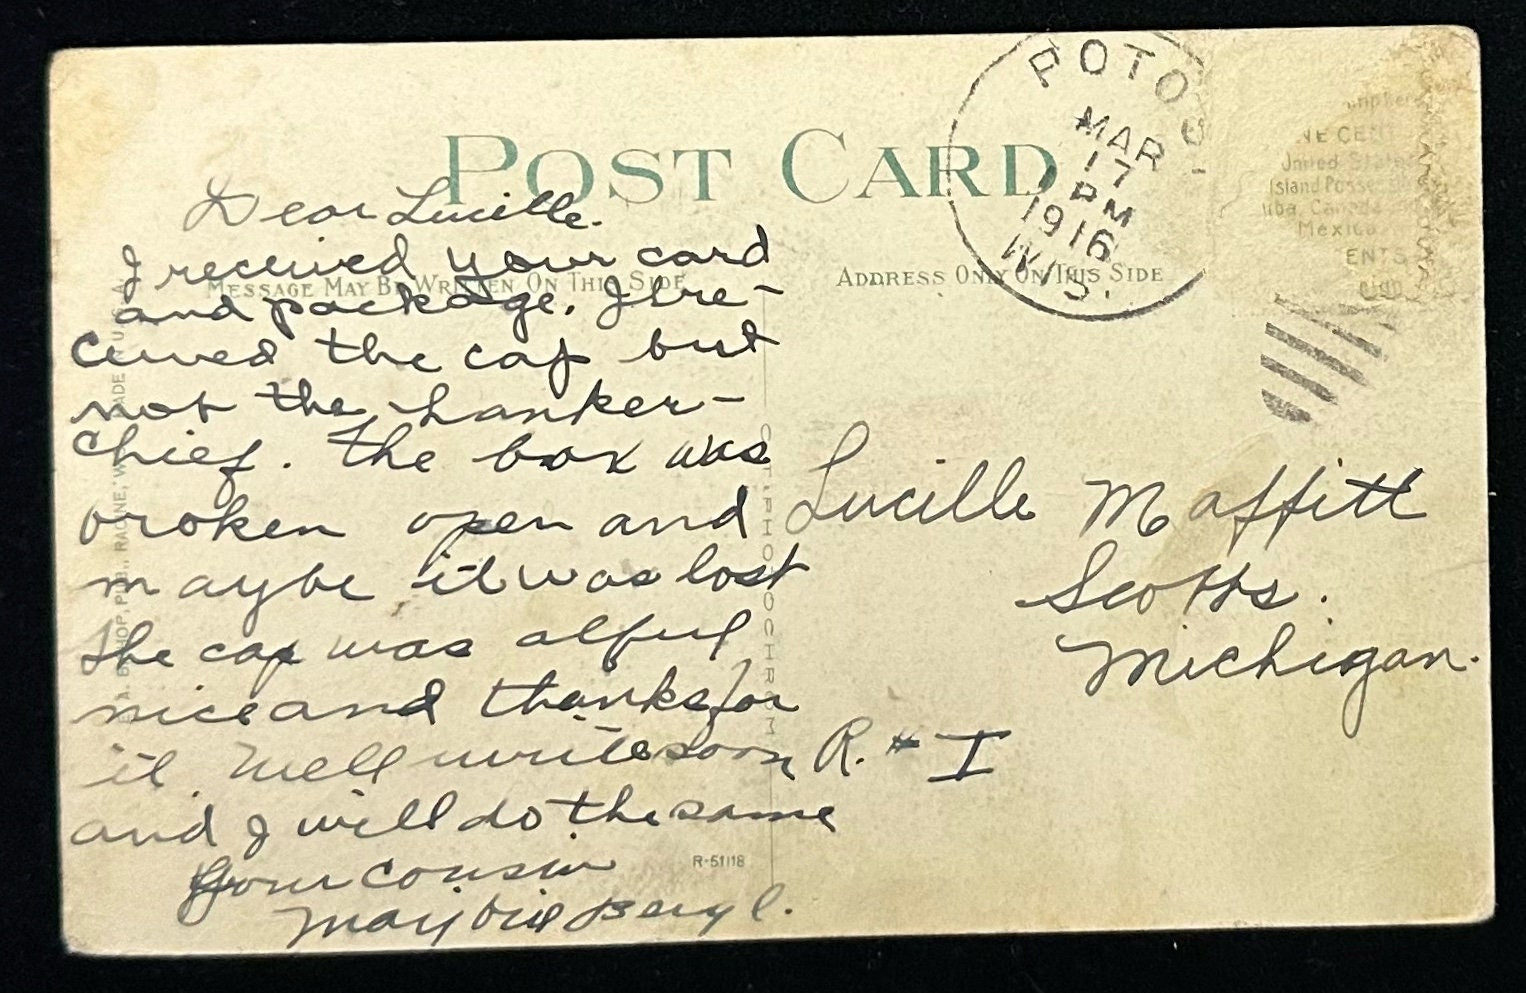 POST CARD
MESSAGE MAY BE WRITTEN ON THIS SIDE
ADDRESS ONLY ON THIS SIDE
POTOSI
MAR
17
PM
1916
WIS.
NE CENT
United States
Island Posse
uba, Canada
Mexico
ENTS
Dear Lucille.
I received your card
and package. I re-
cieved the cap but
not the hanker-
chief. The box was
broken open and
maybe it was lost
the cap was alful
nice and thanks for
it Well write soon
and I will do the same
Your cousin
Beryl.
Lucille Maffitt
Scotts.
Michigan.
R. # I
C. T. PHOTOCHROM
R-51118